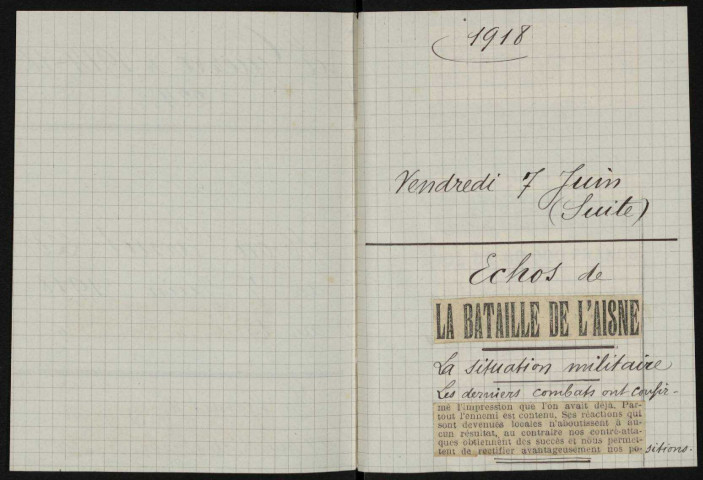 1918
Vendredi 7 Juin
(Suite)
Echos de
LA BATAILLE DE L'AISNE
La situation militaire
Les derniers combats ont confir-
mé l'impression que l'on avait déjà. Par-
tout l'ennemi est contenu. Ses réactions qui
sont devenues locales n'aboutissent à au-
cun résultat, au contraire nos contre-atta-
ques obtiennent des succès et nous permet-
tent de rectifier avantageusement nos po-sitions.